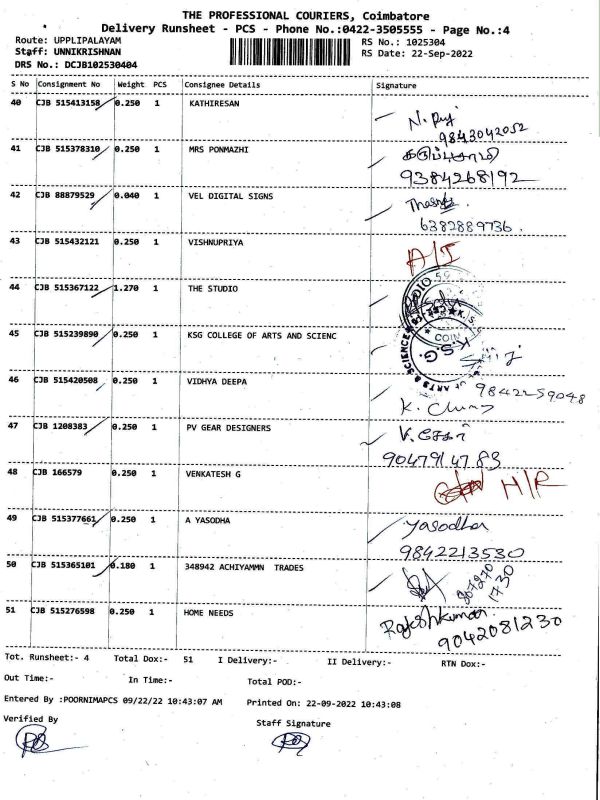 THE PROFESSIONAL COURIERS, Coimbatore
Delivery Runsheet - PCS - Phone No.:0422-3505555 - Page No.:4
Route: UPPLIPALAYAM
RS No.: 1025304
Staff: UNNIKRISHNAN
RS Date: 22-Sep-2022
DRS No.: DCJB102530404
S No Consignment No Weight PCS Consignee Details Signature
40 CJB 515413158 0.250 1 KATHIRESAN
9843042052
41 CJB 515378310 0.250 1 MRS PONMAZHI
9384268192
42 CJB 88879529 0.040 1 VEL DIGITAL SIGNS
6382889736.
43 CJB 515432121 0.250 1 VISHNUPRIYA A/I
44 CJB 515367122 1.270 1 THE STUDIO
45 CJB 515239890 0.250 1 KSG COLLEGE OF ARTS AND SCIENC
K.S.G.
46 CJB 515420508 0.250 1 VIDHYA DEEPA
9842259048
47 CJB 1208383 0.250 1 PV GEAR DESIGNERS
9047914783
48 CJB 166579 0.250 1 VENKATESH G
49 CJB 515377661 0.250 1 A YASODHA Yasodha
9842213530
50 CJB 515365101 0.180 1 348942 ACHIYAMMN TRADES
51 CJB 515276598 0.250 1 HOME NEEDS Rajeshkumar
9042081230
Tot. Runsheet:- 4 Total Dox:- 51 I Delivery:- II Delivery:- RTN Dox:-
Out Time:- In Time:- Total POD:-
Entered By :POORNIMAPCS 09/22/22 10:43:07 AM Printed On: 22-09-2022 10:43:08
Verified By Staff Signature